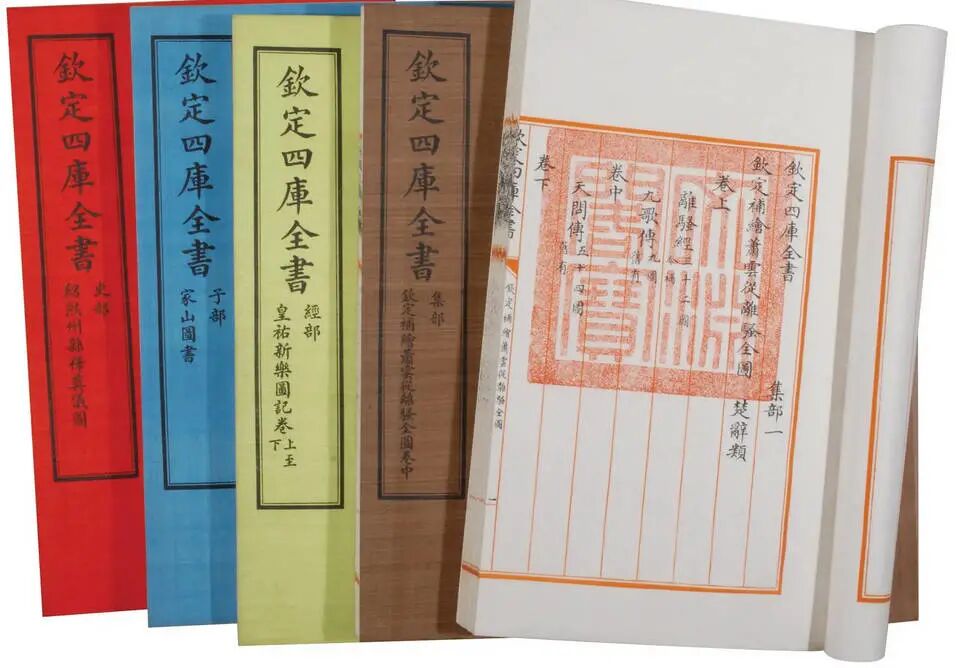 欽定四庫全書
史部
紹熙州縣釋奠儀圖
欽定四庫全書
子部
家山圖書
欽定四庫全書
經部
皇祐新樂圖記卷上至下
欽定四庫全書
集部
欽定補繪蕭雲從離騷全圖卷中
欽定四庫全書
集部一
欽定補繪蕭雲從離騷全圖
楚辭類
卷上
離騷經三十二圖
今補
卷中
九歌傳九圖
舊有
天問傳五十四圖
舊有
卷下
欽定四庫全書
欽定補繪蕭雲從離騷全圖
一